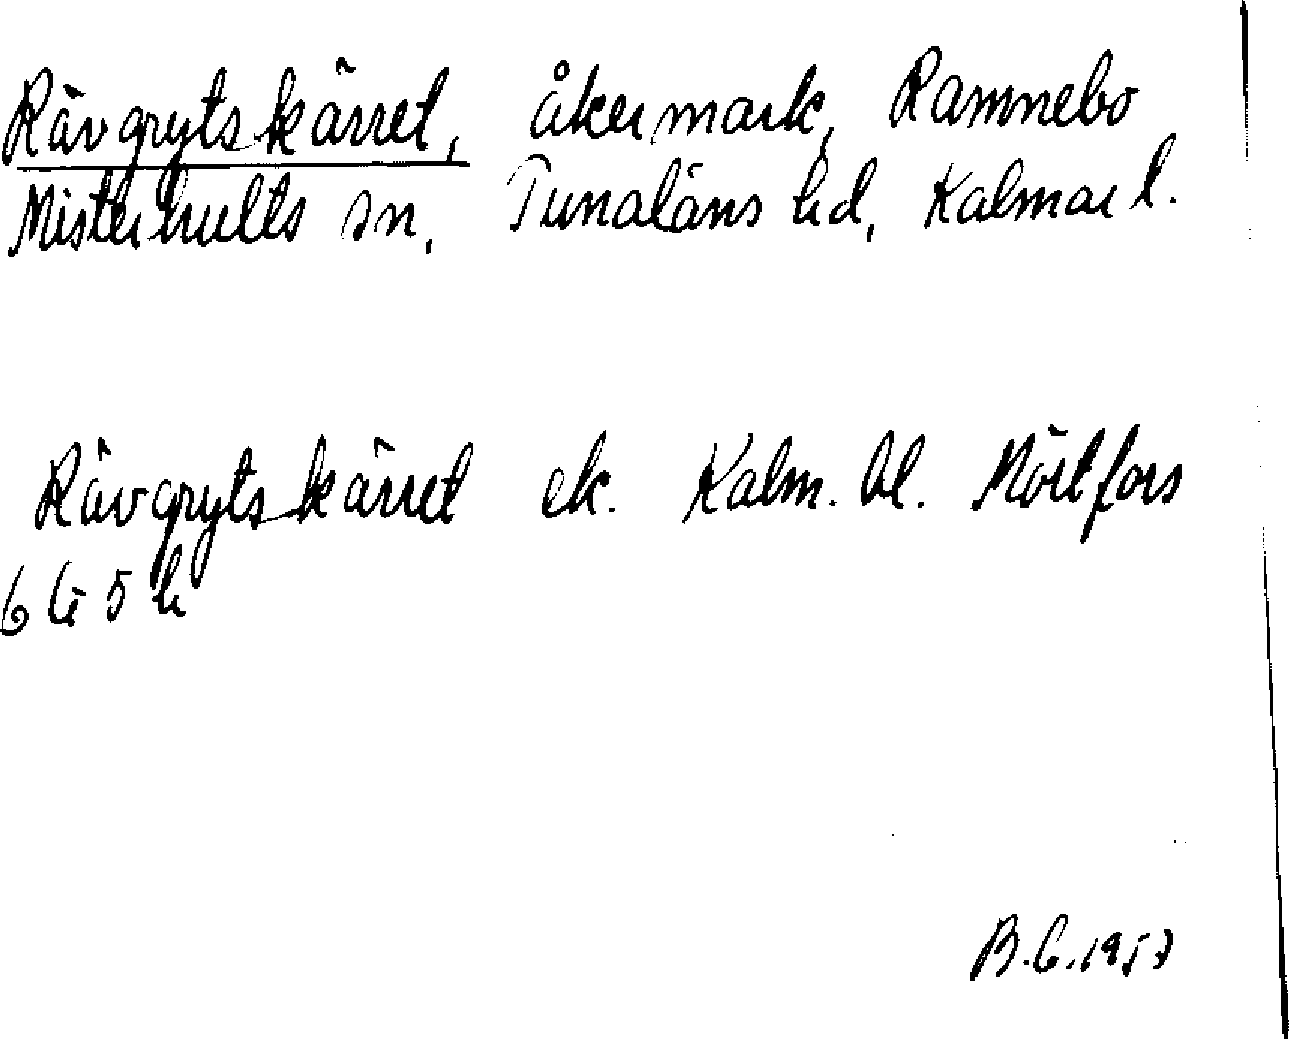 Rävgrytskärret, åkermark, Ramnebo
Misterhults sn, Tunaläns hd, Kalmar l.
Rävgrytskärret ek. Kalm. bl. Mörtfors
6 G 5 h
B.G. 1957